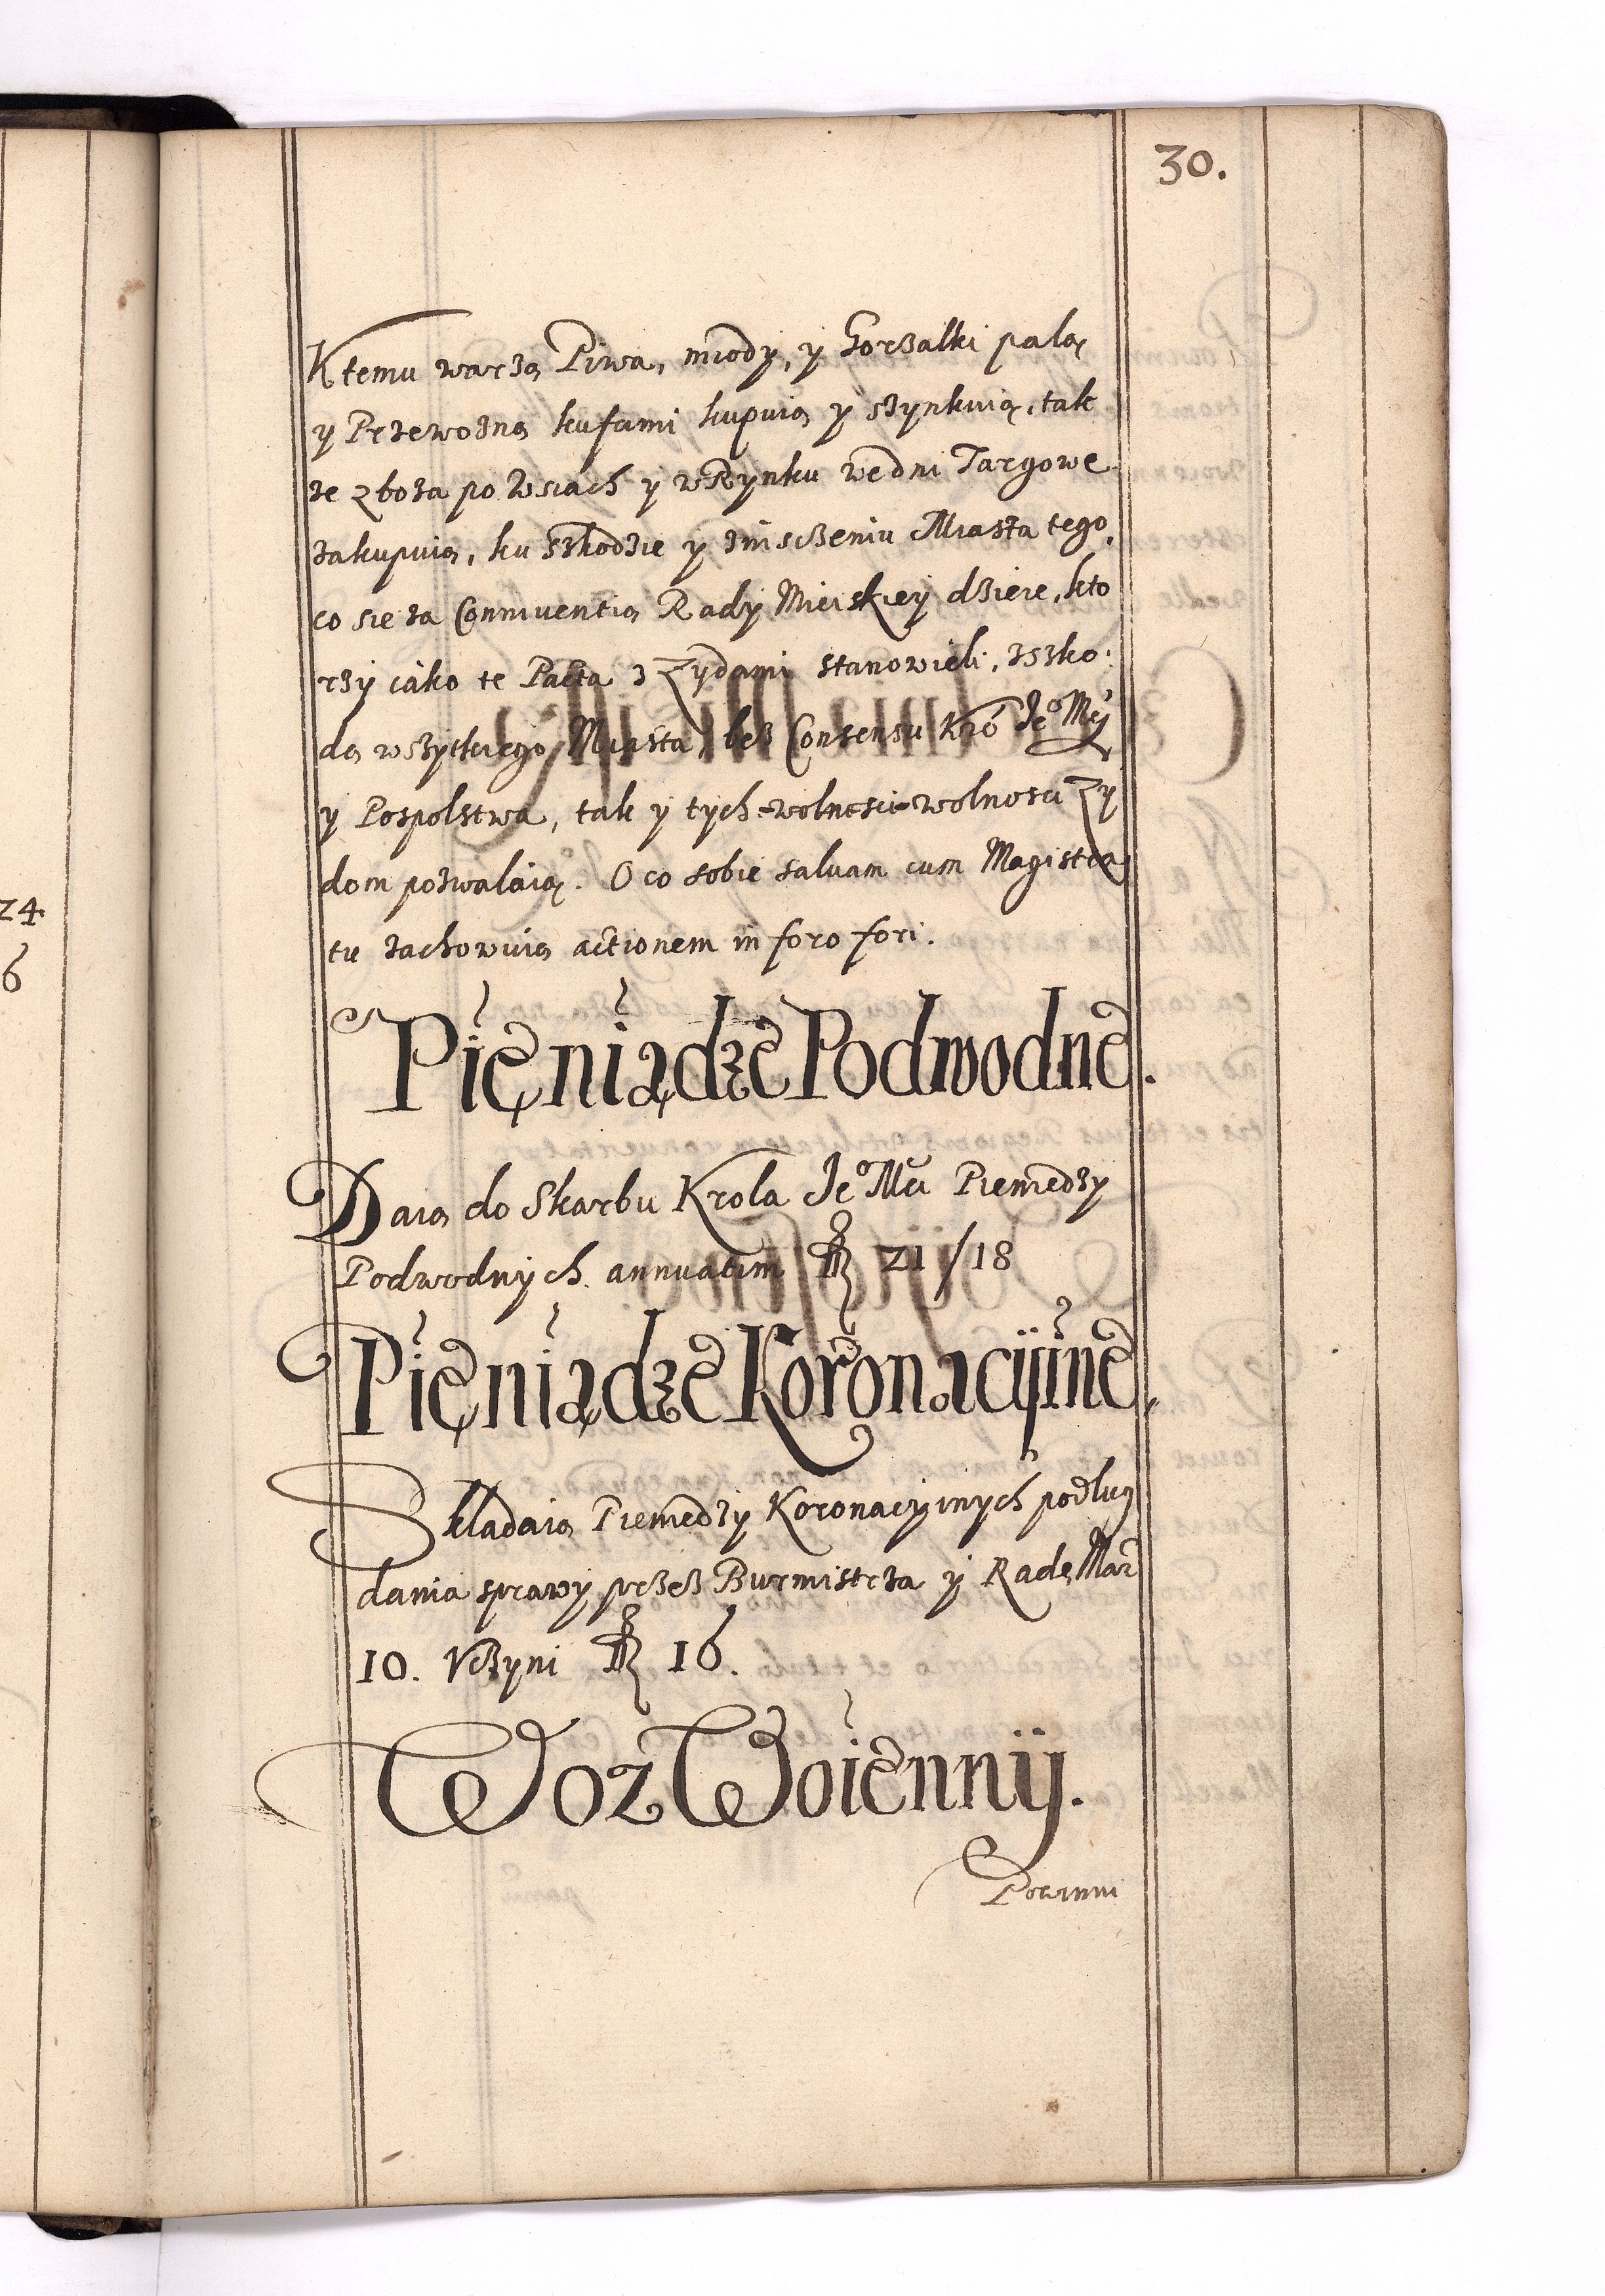 30.
Ktemu warzą Piwa, miody, y Gorzałki palą
y Przewożną kufami kupuią y szynkuią, tak
że zboża po Wsiach y w Rynku we dni Targowe
zakupuią, ku szkodzie y zniszczeniu Miasta tego,
co się za Conniventią Rady Mieiskiey dzieie, kto
rzy iáko te Pacta z Zydami stanowieli, z szko:
dą wszytkiego Miasta, bez Consensu Kró Je° Mći
y Pospolstwa, tak y tych wolnosci wolnosci Zy
dom pozwalaią. O co sobie salvam cum Magistra
tu zachowuią actionem in foro fori.
Pieniądze Podwodne.
Daią do Skarbu Krola Je° Mći Pieniędzy
Podwodnych annuatim fl 21/18
Pieniądze Koronacyine.
Składaią Pieniędzy Koronacyinych podług
dania sprawy przez Burmistrza y Radę Mar
10. Vczyni fl 16.
Woz Woienny.
Powinni
24
6